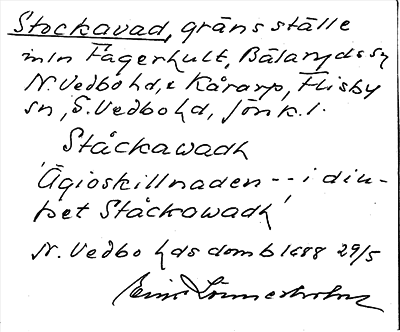 Stockavad, gränsställe
mln Fagerhult, Bälaryds sn
N. Vedbo hd, & Kårarp, Flisby
sn, S. Vedbo hd, Jönk. l.
Ståckawadh
'Ägioskillnaden -- i diu-
pet Ståckawadh'
N. Vedbo hds domb 1688 29/5